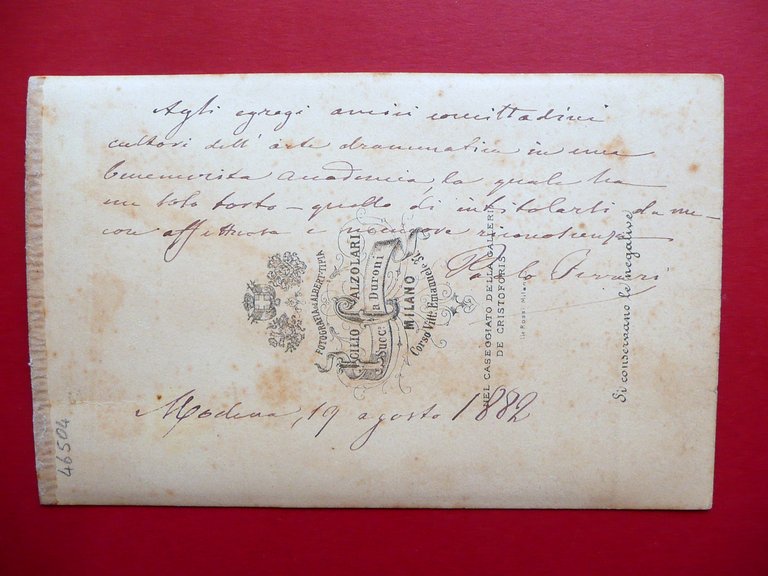 Agli egregi amici concittadini
cultori dell'arte drammatica in una
benemerita Accademia, la quale ha
un solo torto - quello di intitolarsi da me -
con affettuosa e riconoscenza
Paolo Ferrari
Modena, 19 agosto 1882
FOTOGRAFIA ed ALBERT-TIPIA
ICILIO CALZOLARI
Succ.e a Duroni
MILANO
Corso Vitt.o Emanuele
NEL CASEGGIATO DELLA GALLERIA
DE CRISTOFORIS
Rossi Milano
Si conservano le negative
46504